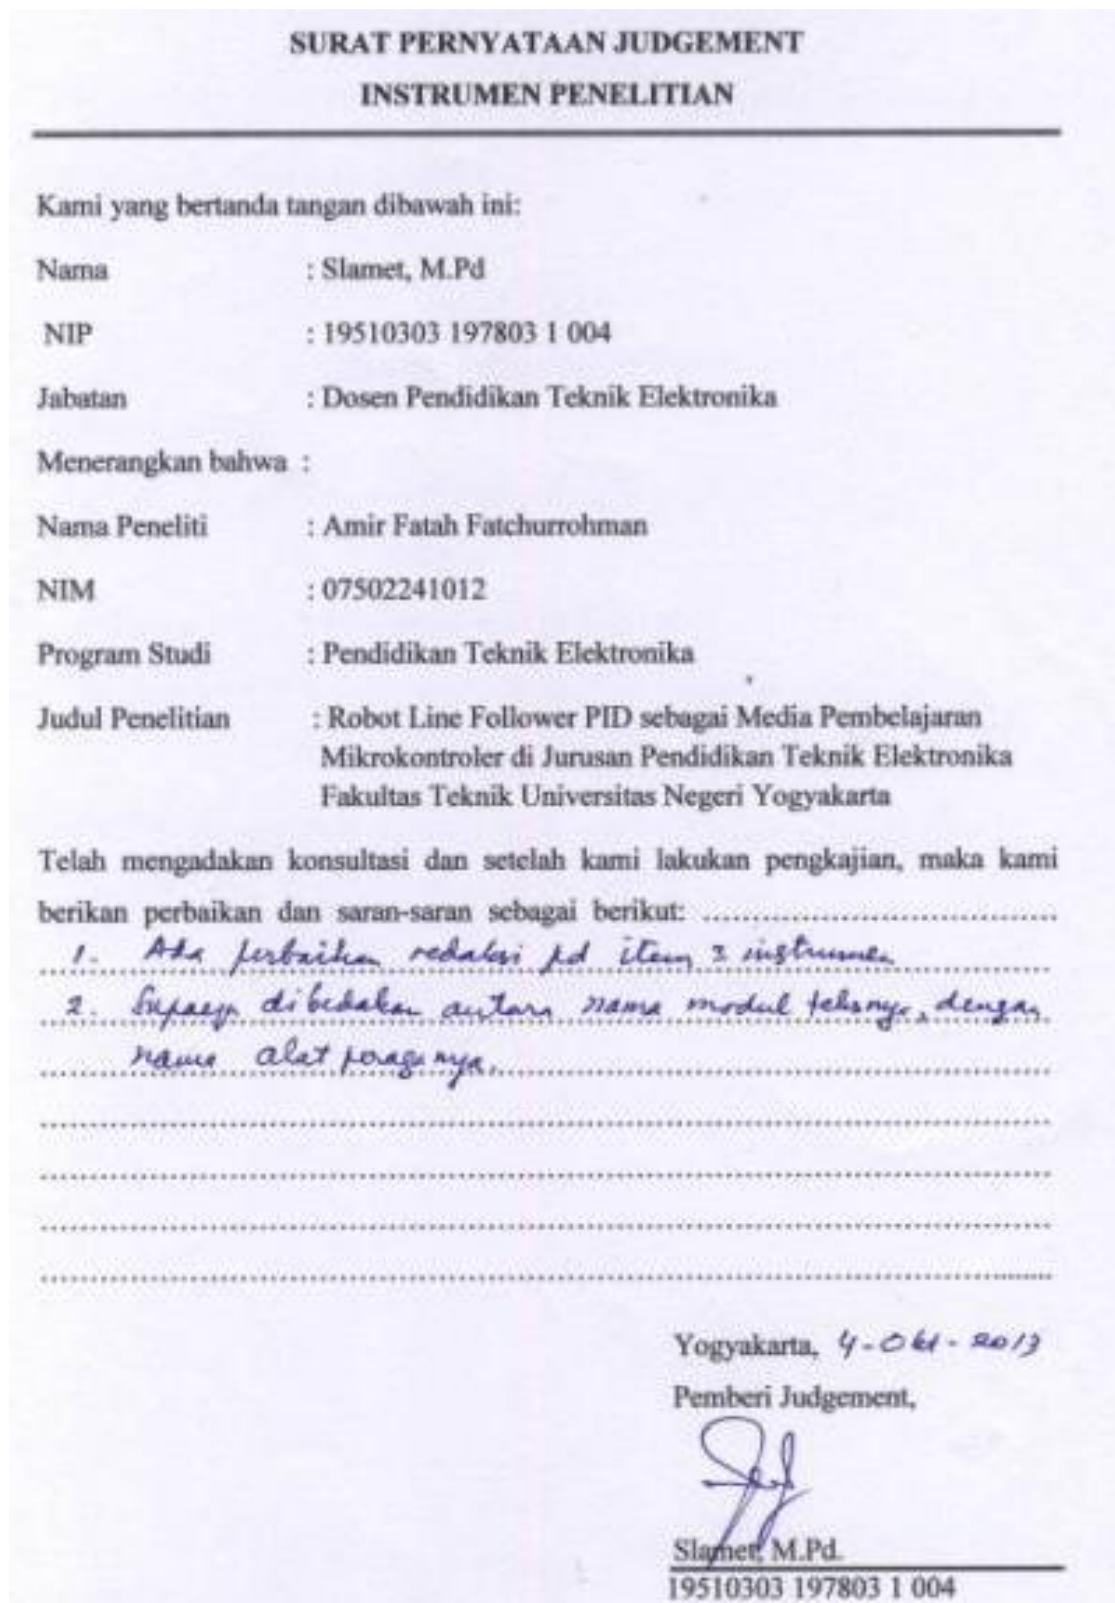 SURAT PERNYATAAN JUDGEMENT
INSTRUMEN PENELITIAN
Kami yang bertanda tangan dibawah ini:
Nama : Slamet, M.Pd
NIP : 19510303 197803 1 004
Jabatan : Dosen Pendidikan Teknik Elektronika
Menerangkan bahwa :
Nama Peneliti : Amir Fatah Fatchurrohman
NIM : 07502241012
Program Studi : Pendidikan Teknik Elektronika
Judul Penelitian : Robot Line Follower PID sebagai Media Pembelajaran
Mikrokontroler di Jurusan Pendidikan Teknik Elektronika
Fakultas Teknik Universitas Negeri Yogyakarta
Telah mengadakan konsultasi dan setelah kami lakukan pengkajian, maka kami
berikan perbaikan dan saran-saran sebagai berikut: ....................................
1. Ada perbaikan redaksi pd item instrumen
2. Supaya dibedakan antara nama modul teksnya, dengan
nama alat peraganya.
Yogyakarta, 4-Okt-2013
Pemberi Judgement,
Slamet, M.Pd.
19510303 197803 1 004